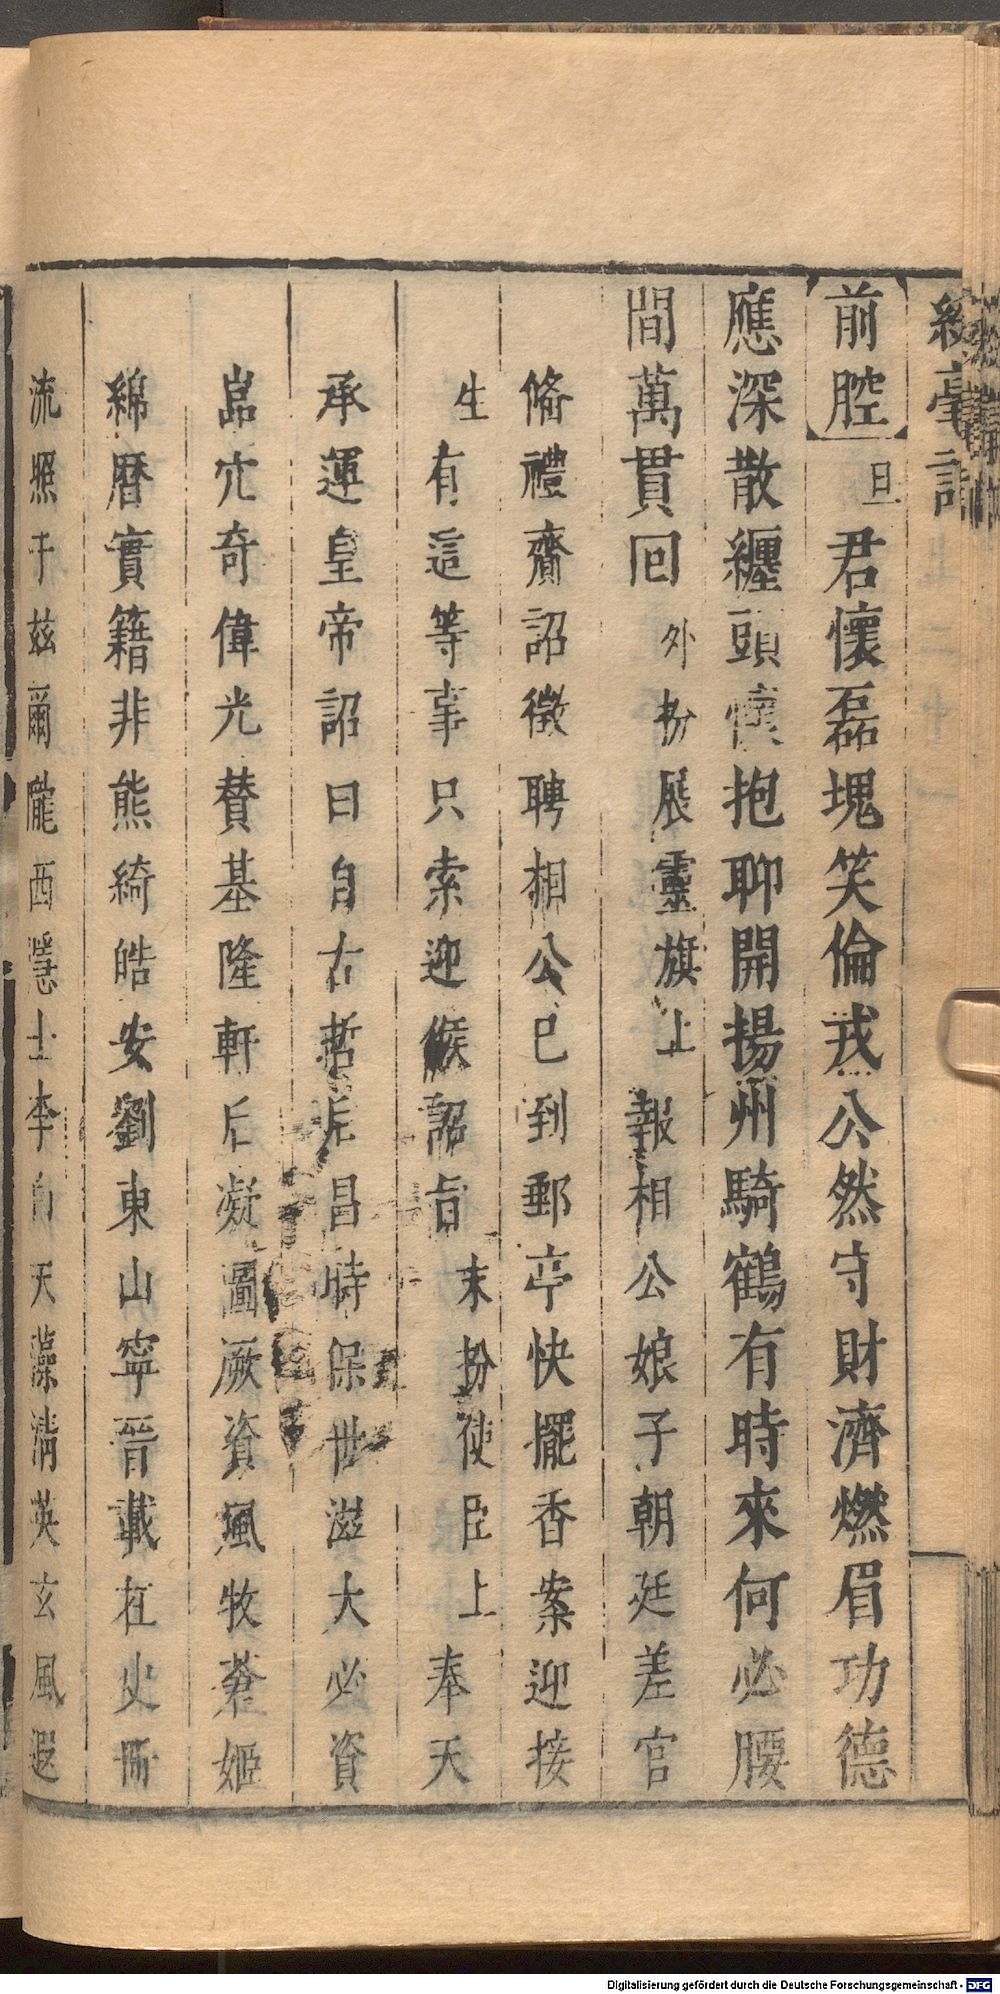 綵毫記
前腔 旦 君懷磊塊笑倫戎公然守財濟燃眉功德
應深散纏頭懷抱聊開揚州騎鶴有時來何必腰
間萬貫回 外扮展靈旗上 報相公娘子朝廷差官
俻禮齎詔徵聘相公已到郵亭快擺香案迎接
生 有這等事只索迎候詔旨 末扮使臣上 奉天
承運皇帝詔曰自古哲后昌時保世滋大必資
嵓穴奇偉光賛基隆軒后凝圖厥資風牧蒼姬
綿曆實籍非熊綺皓安劉東山寧晉載在史冊
流照于兹爾隴西隱士李白天藻清英玄風遐
Digitalisierung gefördert durch die Deutsche Forschungsgemeinschaft - DFG